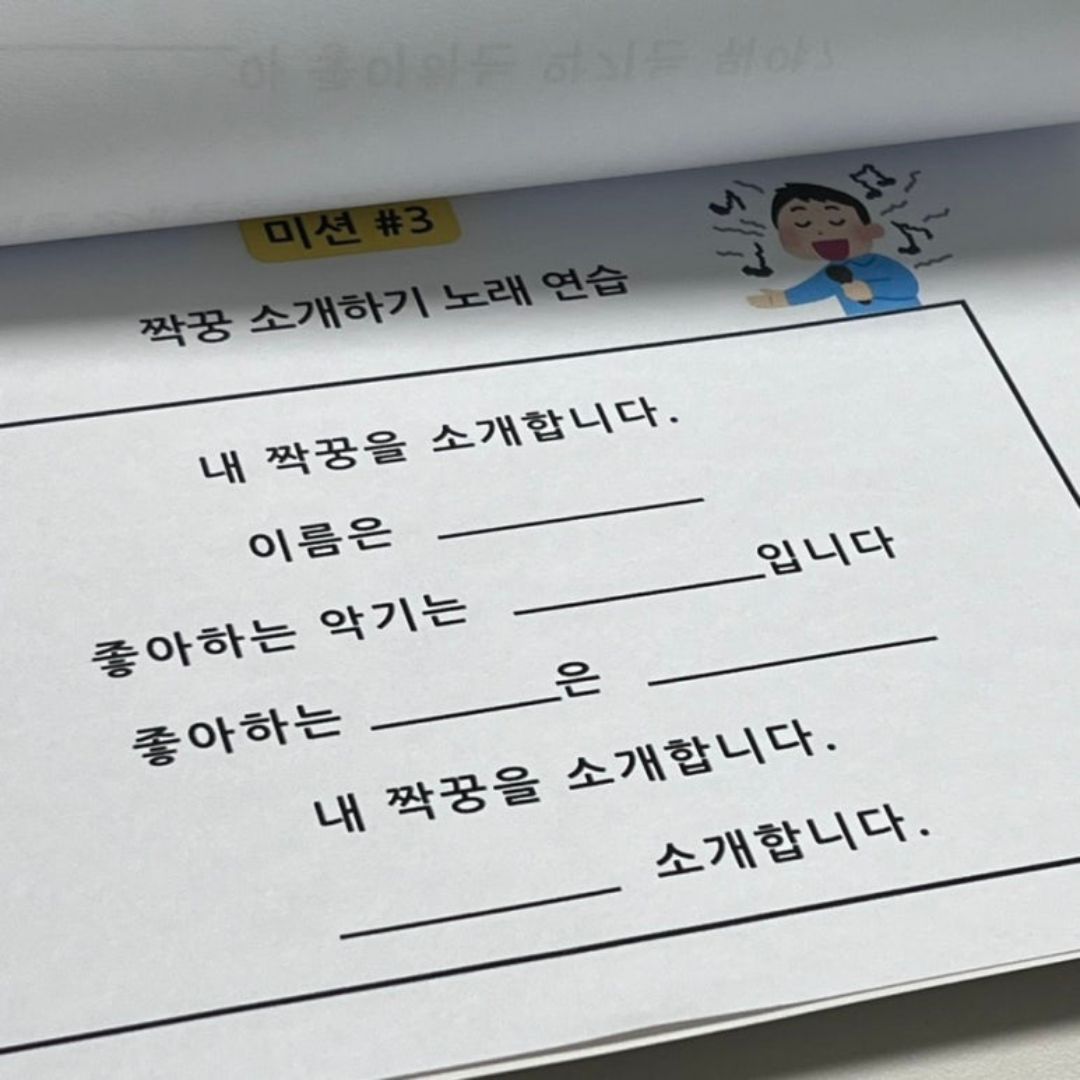 미션 #3
짝꿍 소개하기 노래 연습
내 짝꿍을 소개합니다.
이름은 ________
좋아하는 악기는 ________입니다
좋아하는 ______은 ________
내 짝꿍을 소개합니다.
________ 소개합니다.